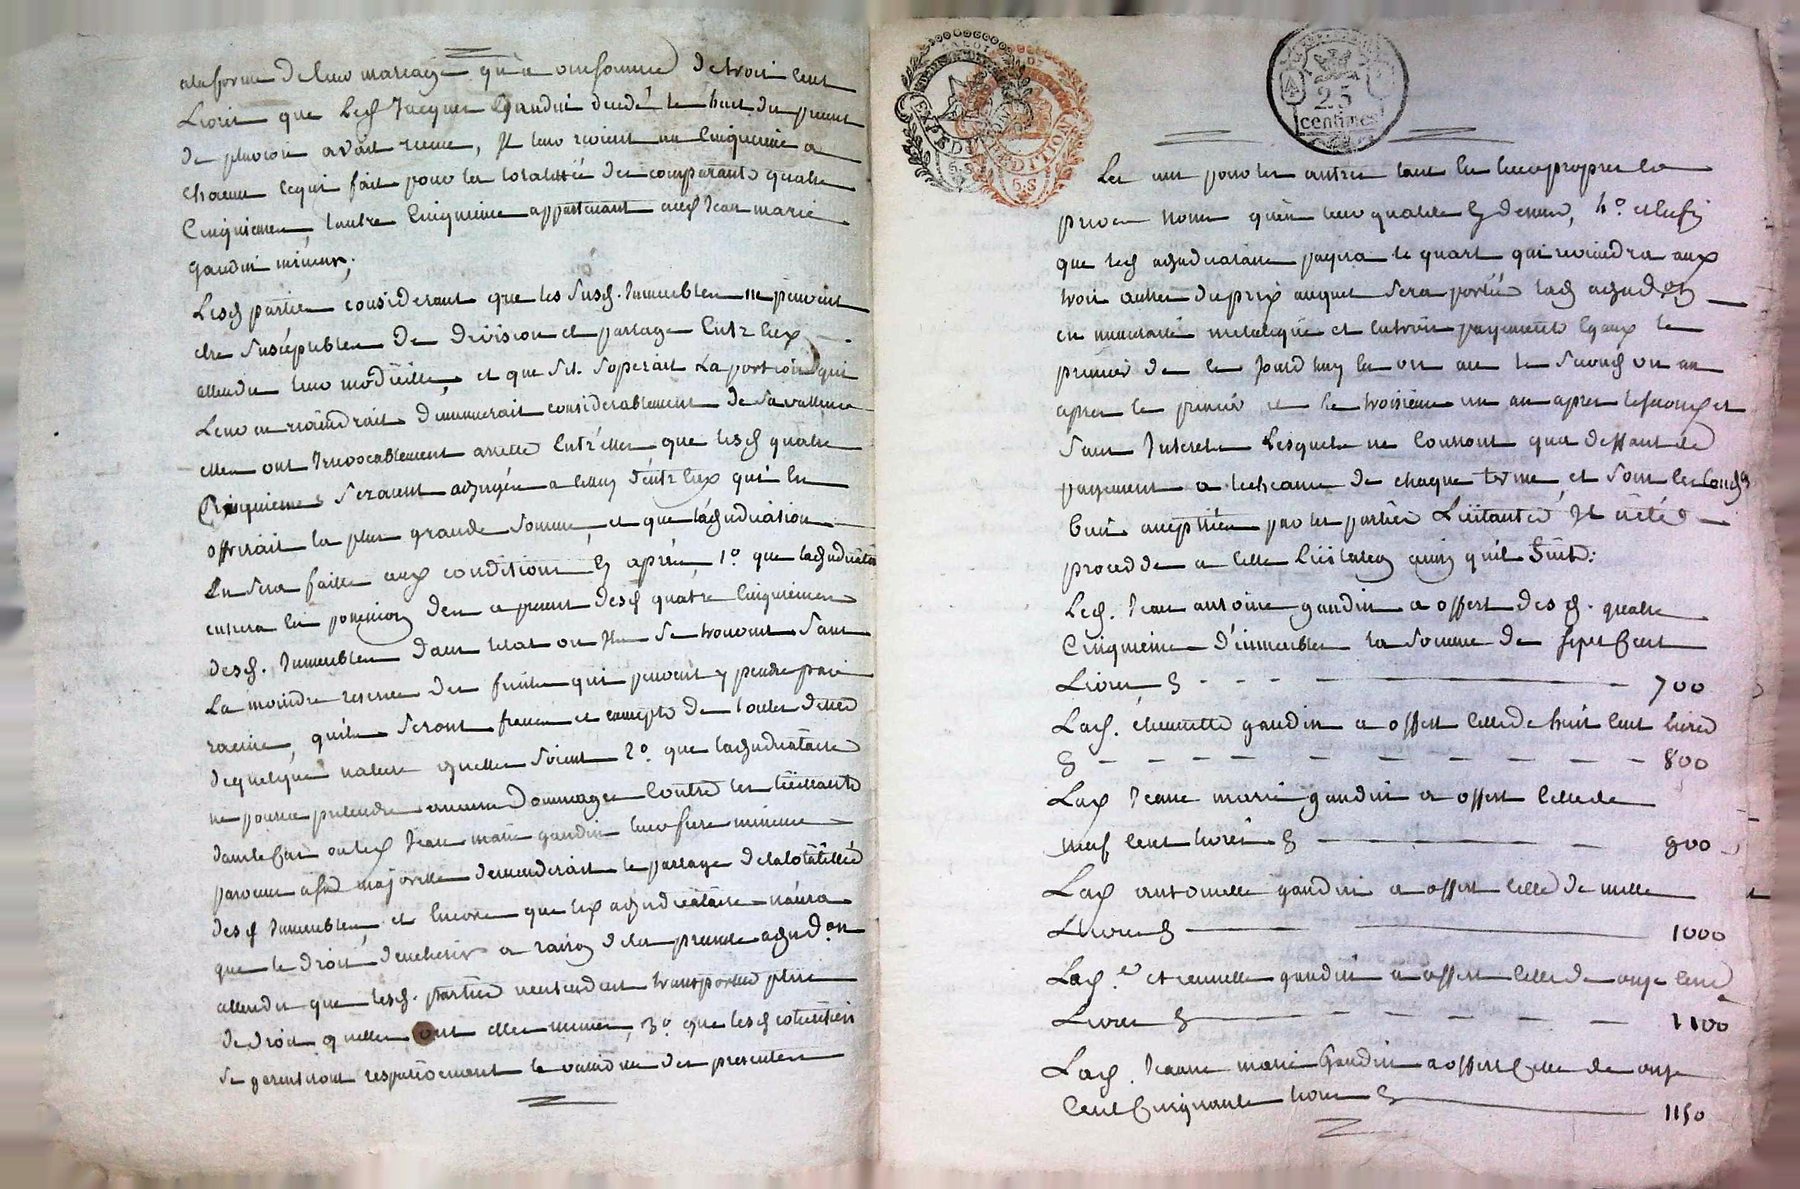 ala forme de leur mariage qu'a une somme de trois cent
Livres que led Jacques gaudin decédé le huit du present
de pluviose avait recue, Il leur revient un cinquieme a
chacun lequi fait pour la totalité des comparants quatre
Cinquiemes, l'autre cinquieme appartenant aud Jean marie
gaudin mineur;
Lesd parties considerant que les susd. Immeubles ne peuvent
etre suscéptibles de division et partage entr'eux
attendu leur modicité, et que sil s'operait La portion qui
Leur en reviendrait diminuerait considerablement de sa valleur
elles ont Irrevocablement arreté entr'elles que lesd quatre
Cinquiemes seraient adjugés a celluy d'entr'eux qui en
offrirait la plus grande somme, et que l'adjudication
En sera faitte aux conditions cy après, 1° que ladjudicataire
entrera en possession des a present desd quatre cinquiemes
desd. Immeubles dans letat ou Ils se trouvent sans
La moindre reserve des fruits qui peuvent y pendre par
racine, quils seront francs et exempts de toutes dettes
de quelque nature quelles soient 2° que ladjudicataire
ne pourra pretendre aucuns dommages contre les
dans le cas ou led Jean marie gaudin leur frere mineur
parvenu a sa majorité demanderait le partage de la totallité
desd Immeubles, et encore que led adjudicataire n'aura
que le droit d'encherir a raison de la presente adjud.on
attendu que lesd. parties n'entendent transporter plus
de droit quelles ont elles memes, 3° que lesd
se garentiront respectivement la validité des presentes
EXPEDITION
EXPEDITION
25
centimes
Les uns pour les autres tant en leurs propres et
privés noms qu'en leur qualité cy dessus, 4° et enfin
que led adjudicataire payera le quart qui reviendra aux
trois autres du prix auquel sera portée lad adjud.on
en numeraire metalique et en trois payements Egaux le
premier de ce jourd'huy en un an le second un an
apres le premier et le troisieme un an apres le second et
sans Interets Lesquels ne courront qu'a deffaut de
payement a lecheance de chaque terme, et sous les
bien acceptées par les parties Il a été
procedde a celle ainsy qu'il suit:
Led. Jean antoine gaudin a offert desd. quatre
Cinquiemes d'immeubles la somme de sept cent
Livres cy - - - - 700
Lad. etiennette gaudin a offert celle de huit cent livres
cy - - - - - - - - - 800
Lad Jeanne marie gaudin a offert celle de
neuf cent livres cy - - 900
Lad antoinette gaudin a offert celle de mille
Livres cy - - 1000
Lad. etiennette gaudin a offert celle de onze cent
Livres cy - - - - - 1100
Lad. Jeanne marie Gaudin a offert Celle de onze
Cent Cinquante livres cy - 1150